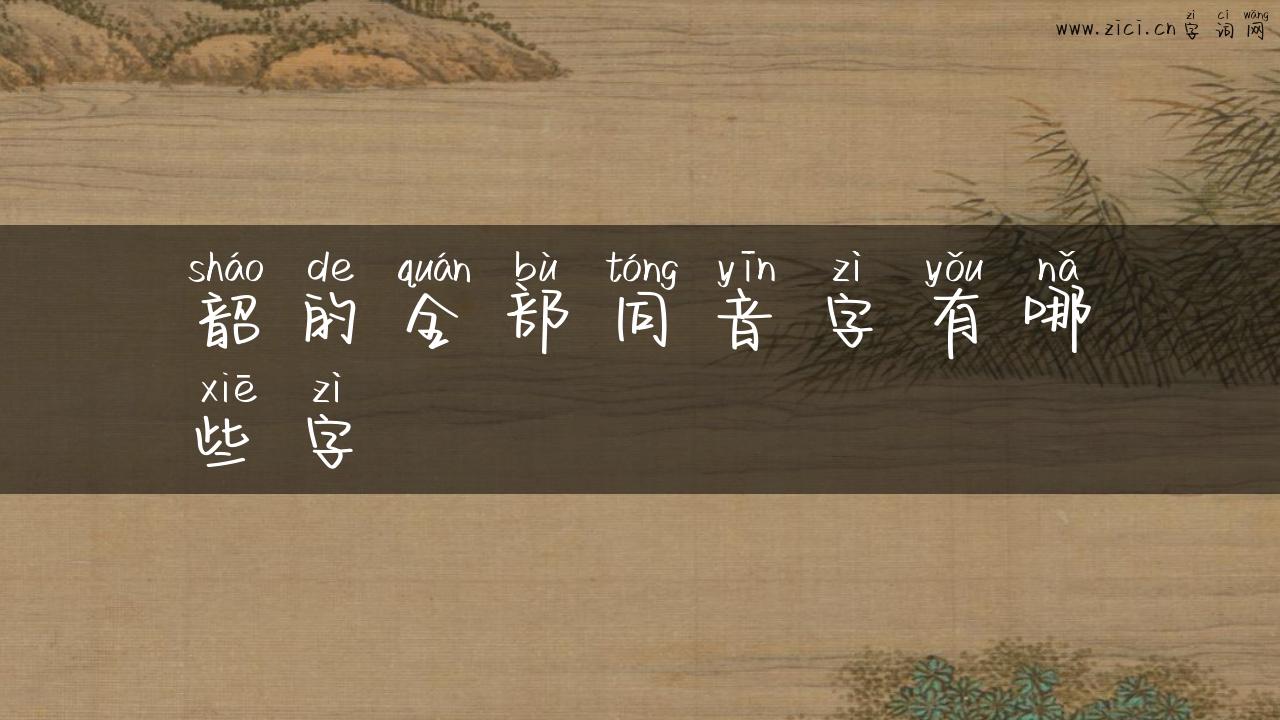 zì cí wǎng
www.zici.cn字词网
sháo de quán bù tóng yīn zì yǒu nǎ
韶的全部同音字有哪
xiē zì
些字